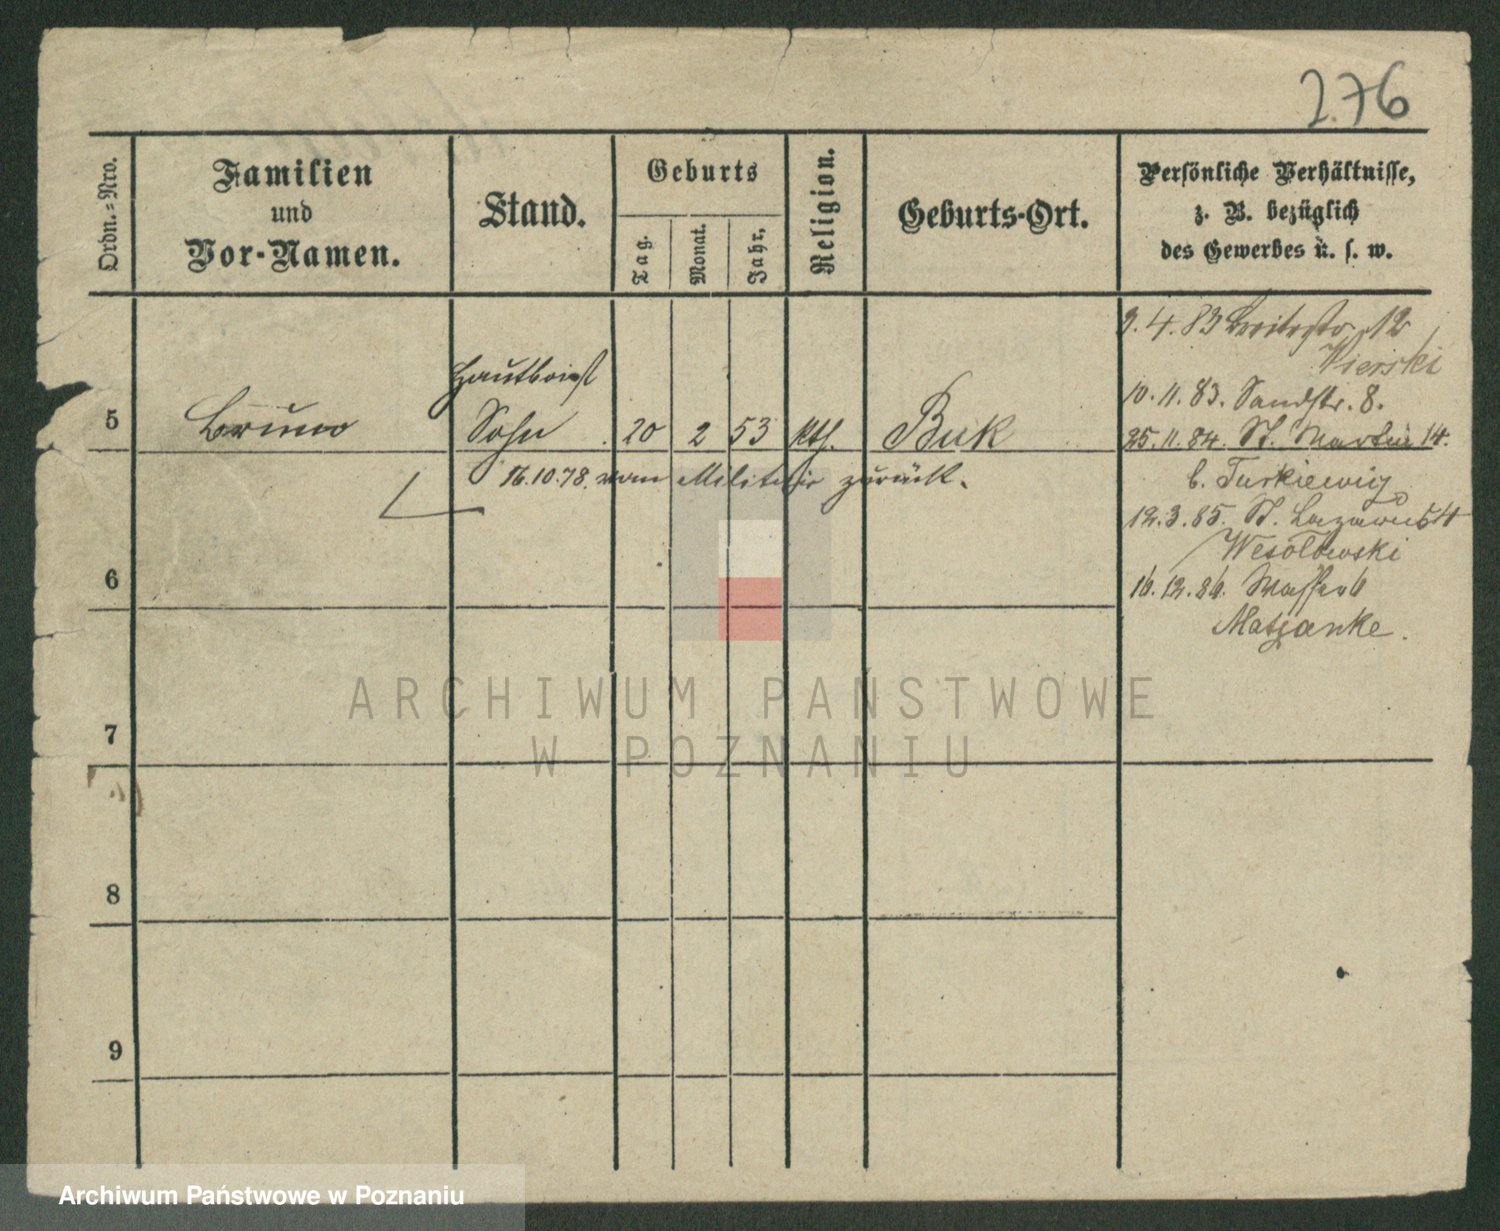 276
Ordn.-Nro.
Familien
und
Vor-Namen.
Stand.
Geburts
Tag.
Monat.
Jahr.
Religion.
Geburts-Ort.
Persönliche Verhältnisse,
z. B. bezüglich
des Gewerbes u. s. w.
3.4.83 Breitestr. 12
Wierski
10.11.83. Sandstr. 8.
5 Bruno Sohn 20 2 53 kth. Buk
25.11.84. St. Martin 14.
16.10.78. vom Militär zurück.
b. Turkiewicz
12.3.85. St. Lazarus 54
Wesołowski
6
16.12.86.
Matzanke.
7
8
9
ARCHIWUM PAŃSTWOWE
W POZNANIU
Archiwum Państwowe w Poznaniu